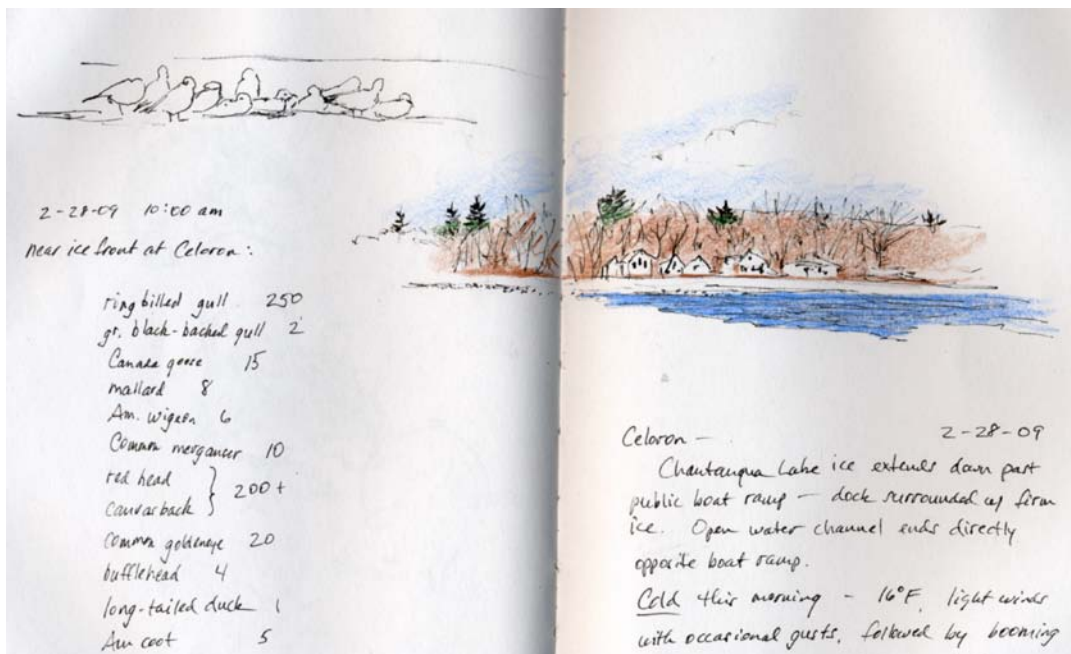 2-28-09 10:00 am
near ice front at Celoron:
ring billed gull 250
gr. black-backed gull 2
Canada goose 15
mallard 8
Am. wigeon 6
Common merganser 10
red head
canvasback } 200+
common goldeneye 20
bufflehead 4
long-tailed duck 1
Am coot 5
Celoron — 2-28-09
Chautauqua Lake ice extends down past
public boat ramp — dock surrounded w/ firm
ice. Open water channel ends directly
opposite boat ramp.
Cold this morning - 16°F, light winds
with occasional gusts, followed by booming